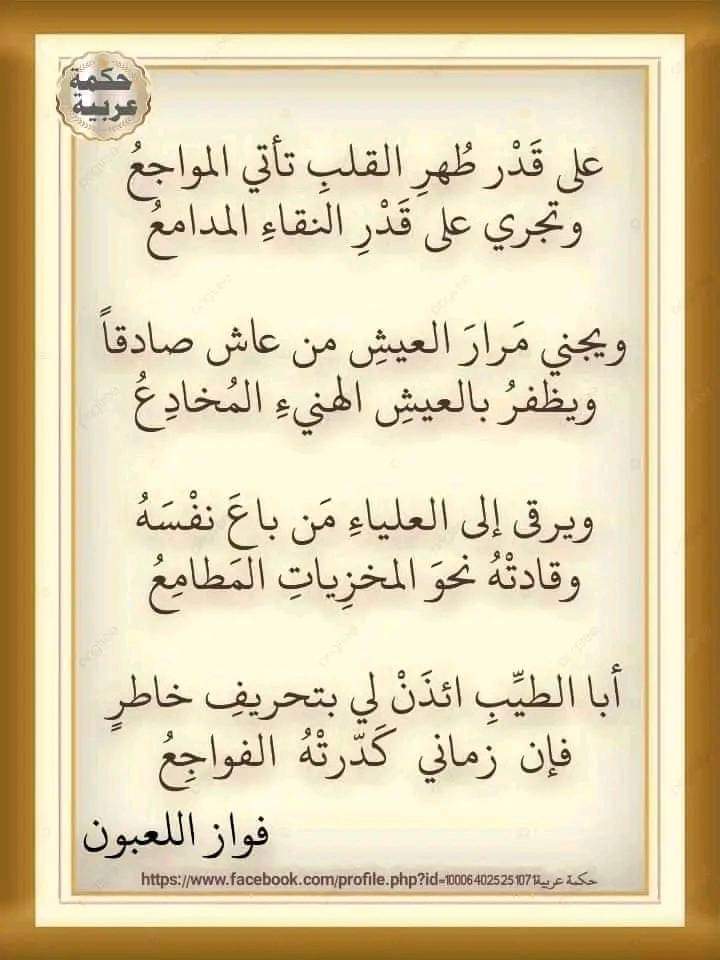 حكمة
عربية
على قَدْر طُهرِ القلبِ تأتي المواجعُ
وتجري على قَدْرِ النقاءِ المدامعُ
ويجني مَرارَ العيشِ من عاش صادقاً
ويظفرُ بالعيشِ الهنيءِ المُخادِعُ
ويرقى إلى العلياءِ مَن باعَ نفْسَهُ
وقادتْهُ نحوَ المخزِياتِ المَطامِعُ
أبا الطيِّبِ ائذَنْ لي بتحريفِ خاطرٍ
فإن زماني كَدّرتْهُ الفواجِعُ
فواز اللعبون
حكمة عربية https://www.facebook.com/profile.php?id=100064025251071